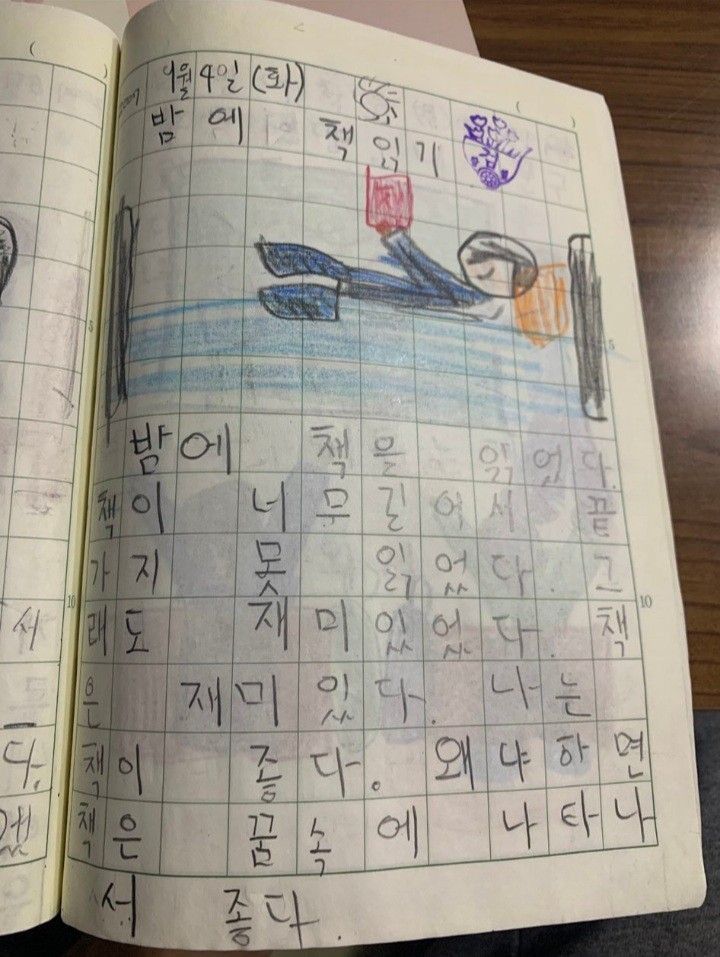 9월 4일 (화)
밤에 책 읽기
밤에 책을 읽었다.
책이 너무 길어서 끝
가지 못 읽었다. 그
래도 재미있었다. 책
은 재미있다. 나는
책이 좋다. 왜냐하면
책은 꿈속에 나타나
서 좋다.
5
10
서
다.
5
10